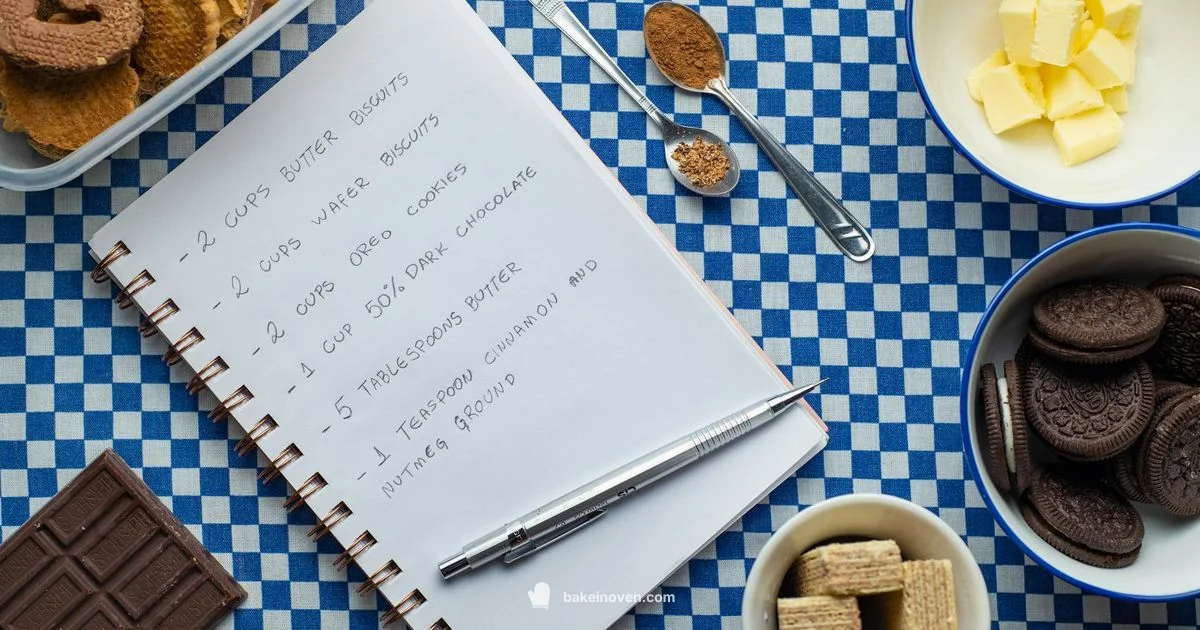 - 2 CUPS BUTTER BISCUITS
- 2 CUPS WAFER BISCUITS
- 2 CUPS OREO COOKIES
- 1 CUP 50% DARK CHOCOLATE
- 5 TABLESPOONS BUTTER
- 1 TEASPOON CINNAMON AND
NUTMEG GROUND
bakeinoven.com